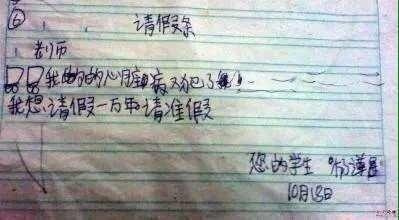 ⑥ 请假条
老师
我的的心脏病又犯了!
我想请假一万年请准假
您的学生 杨
10月18日